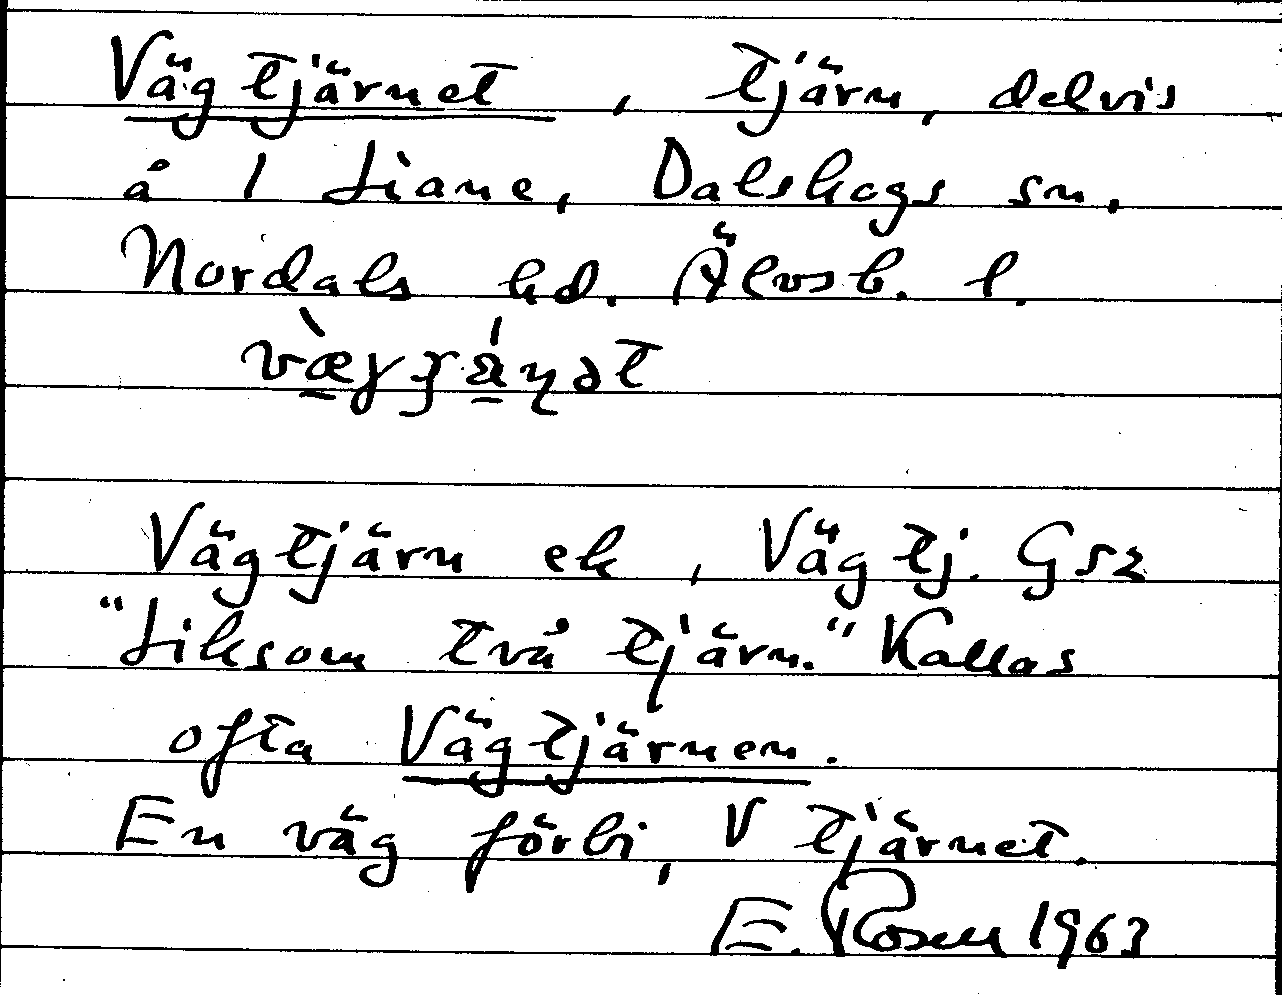 Vägtjärnet, tjärn, delvis
å 1 Liane, Dalskogs sn,
Nordals hd. Älvsb. l.
Vägtjärn ek, Vägtj. G52
"Liksom två tjärn." Kallas
ofta Vägtjärnen.
En väg förbi, V tjärnet.
E. Rosen 1963